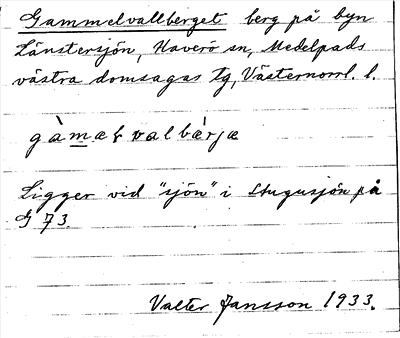 Gammelvallberget berg på byn
Länstersjön, Haverö sn, Medelpads
västra domsagas tg, Västernorrl. l.
gàmæł valbærjæ
Ligger vid "sjön" i Stugusjön på
G 73.
Valter Jansson 1933.